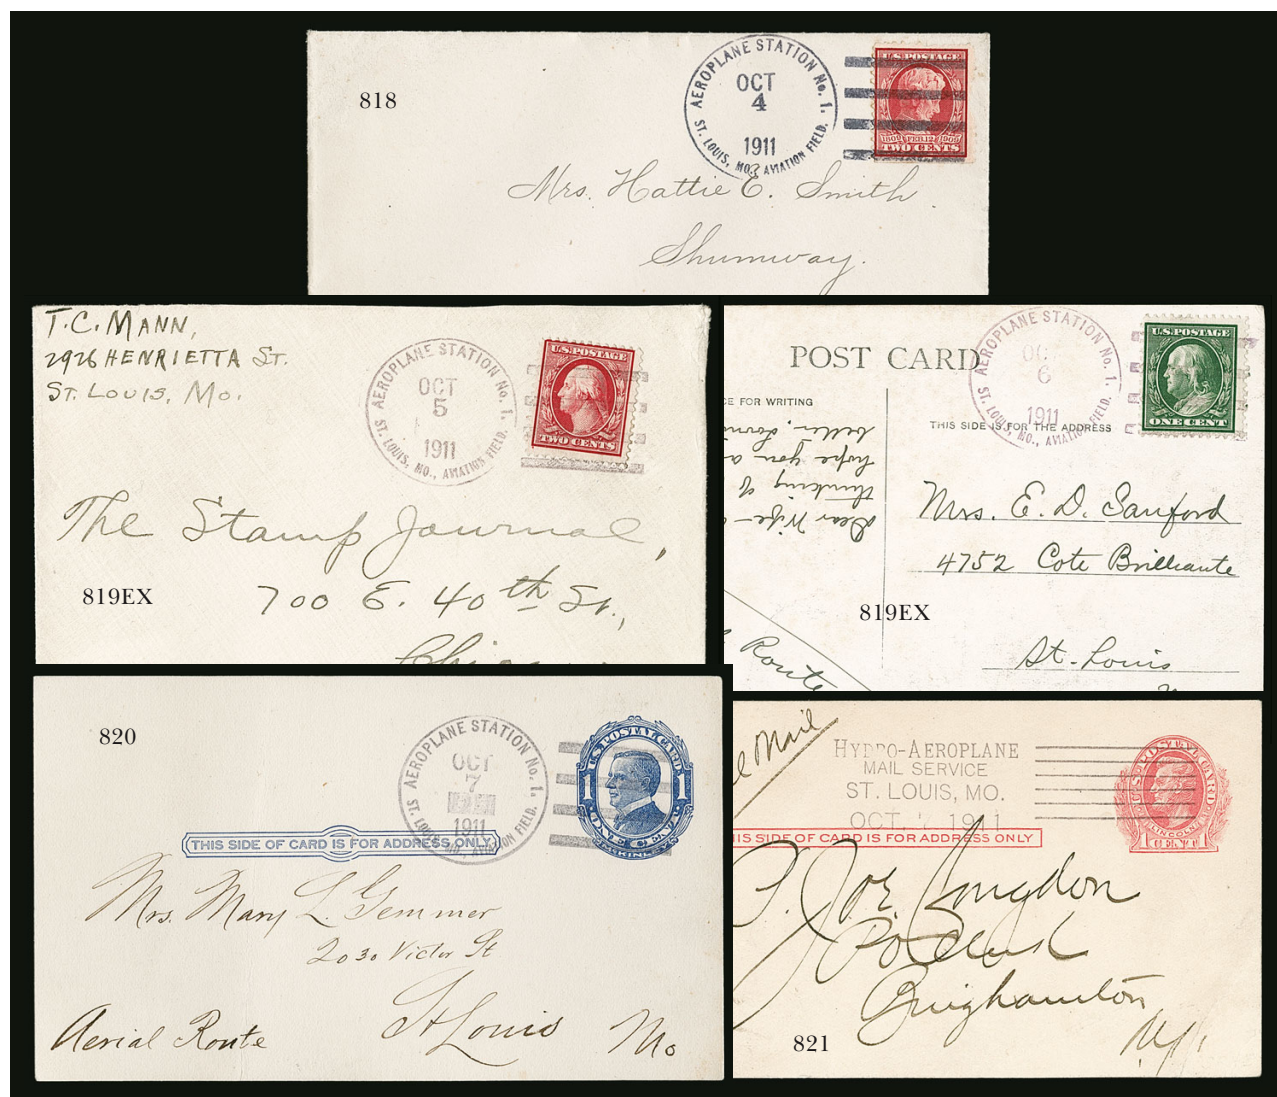 818
AEROPLANE STATION No. 1.
OCT
4
1911
ST. LOUIS, MO., AVIATION FIELD.
U.S. POSTAGE
1809 FEB. 12 1909
TWO CENTS
Mrs. Hattie E. Smith.
Shumway.
T. C. MANN,
2926 HENRIETTA ST.
ST. LOUIS, MO.
AEROPLANE STATION No. 1.
OCT
5
1911
ST. LOUIS, MO., AVIATION FIELD.
U.S. POSTAGE
TWO CENTS
The Stamp Journal,
700 E. 40th St.,
819EX
POST CARD
AEROPLANE STATION No. 1.
OCT
6
1911
ST. LOUIS, MO., AVIATION FIELD.
U.S. POSTAGE
ONE CENT
CE FOR WRITING
THIS SIDE IS FOR THE ADDRESS
Dear Wife-
thinking of
hope you a
better.
Mrs. E. D. Sanford
4752 Cote Brilliante
819EX
St. Louis
Route
820
AEROPLANE STATION No. 1.
OCT
7
1911
ST. LOUIS, MO., AVIATION FIELD.
U.S. POSTAL CARD
1 1
ONE CENT
McKINLEY
THIS SIDE OF CARD IS FOR ADDRESS ONLY
Mrs. Mary L. Gemmer
2030 Victor St
St Louis Mo
Aerial Route
l Mail
HYDRO-AEROPLANE
MAIL SERVICE
ST. LOUIS, MO.
OCT. 7 1911
U.S. POSTAL CARD
LINCOLN
1 CENT 1
HIS SIDE OF CARD IS FOR ADDRESS ONLY
Joe Langdon
PO Clerk
Binghamton
N.Y.
821